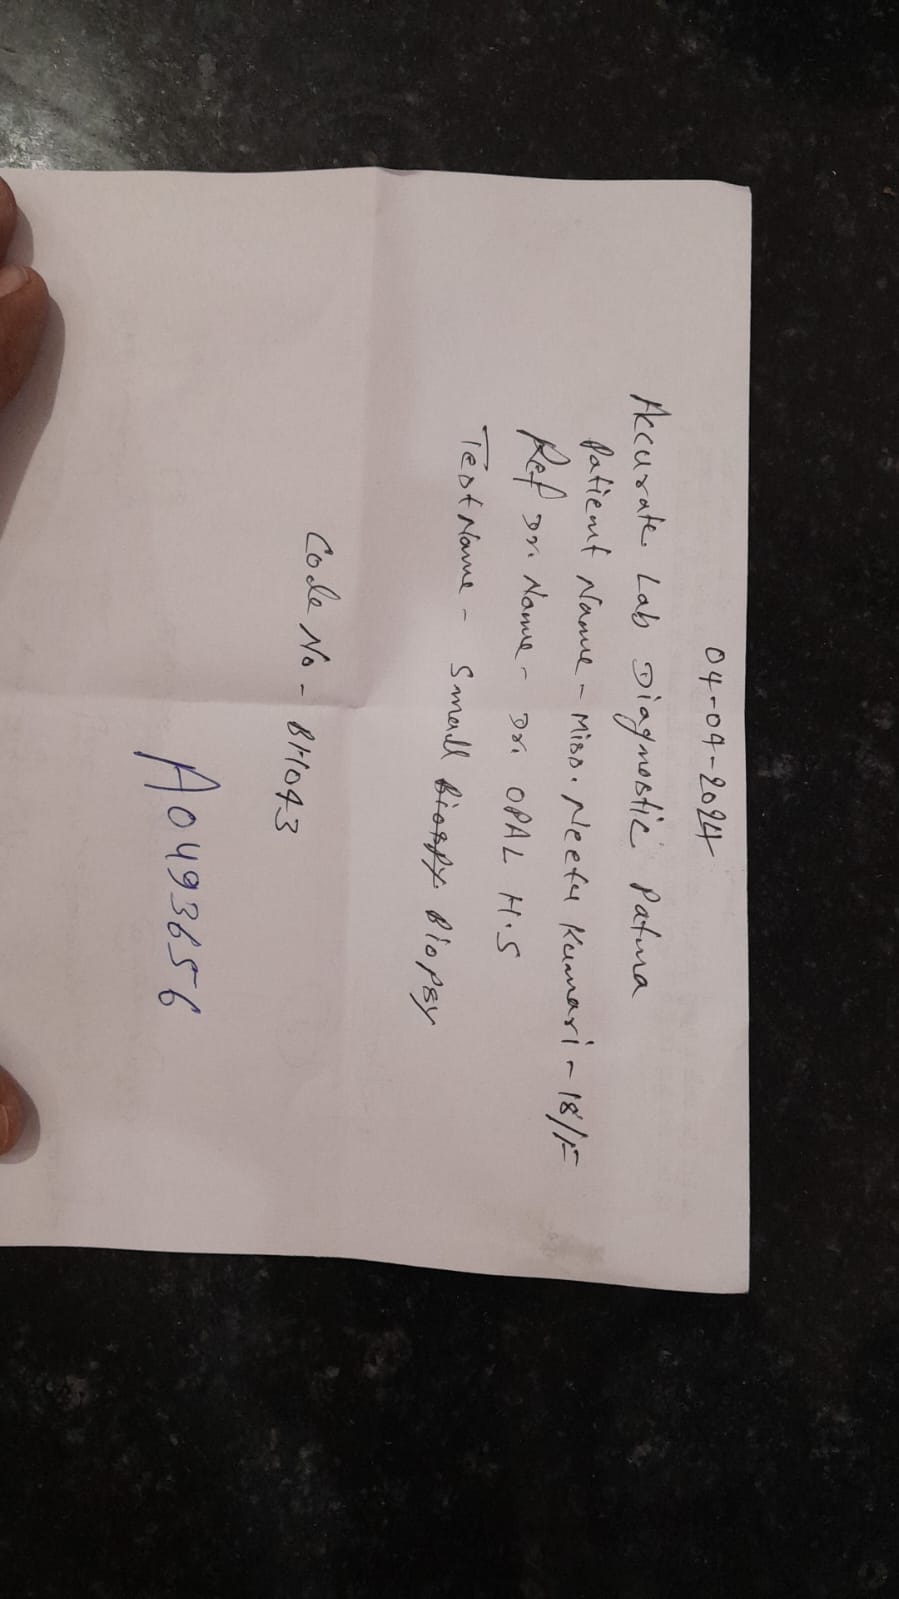 04-09-2024
Accurate Lab Diagnostic Patna
Patient Name - Miss. Neetu Kumari - 18/F
Ref Dr. Name - Dr. OPAL H.S
Test Name - Small Biopsy
Code No - BH043
A0493656